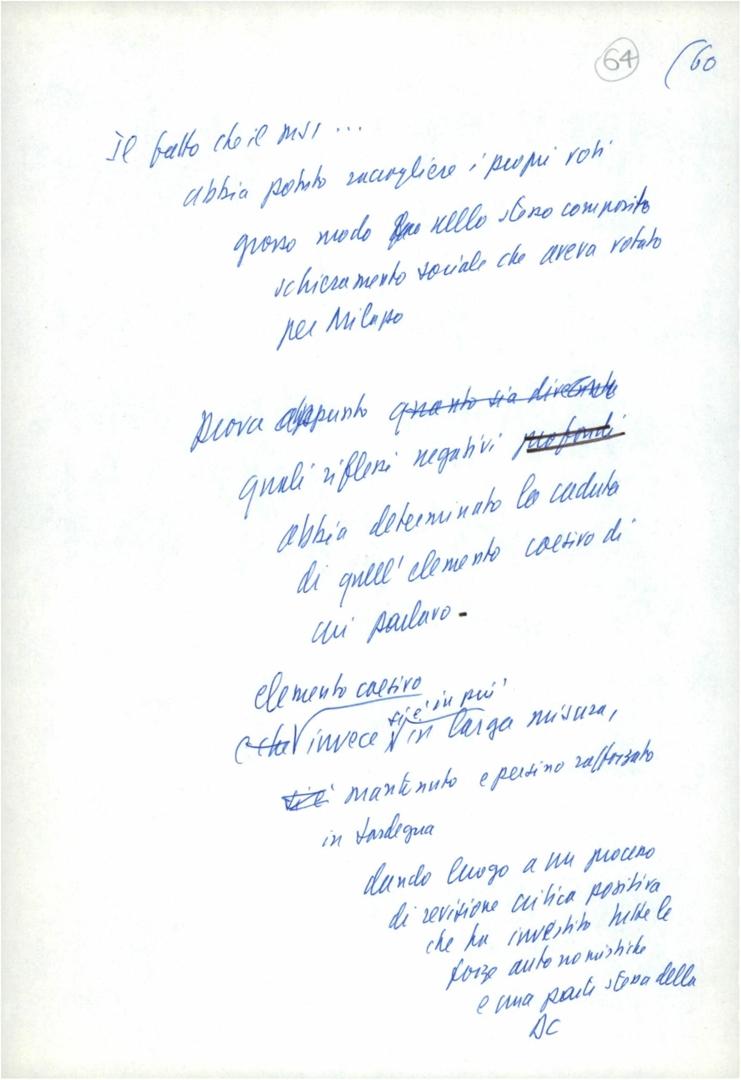 64 (60
Il fatto che il MSI ...
abbia potuto raccogliere i propri voti
grosso modo nello stesso composito
schieramento sociale che aveva votato
per Milazzo
prova appunto quanto sia diventato
quali riflessi negativi profondi
abbia determinato la caduta
di quell'elemento coesivo di
cui parlavo -
elemento coesivo
che invece si è in più in larga misura,
si è mantenuto e persino rafforzato
in Sardegna
dando luogo a un processo
di revisione critica positiva
che ha investito tutte le
forze autonomistiche
e una parte stessa della
DC